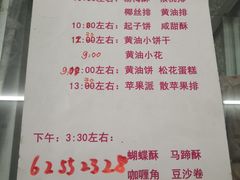 椰丝排 黄油排
10:00左右: 起子饼 咸甜酥
12:00左右: 黄油小饼干
9:00 黄油小花
:00左右: 黄油饼 松花蛋糕
13:00左右: 苹果派 散苹果排
下午: 3:30左右:
62552328 蝴蝶酥 马蹄酥
咖喱角 豆沙卷